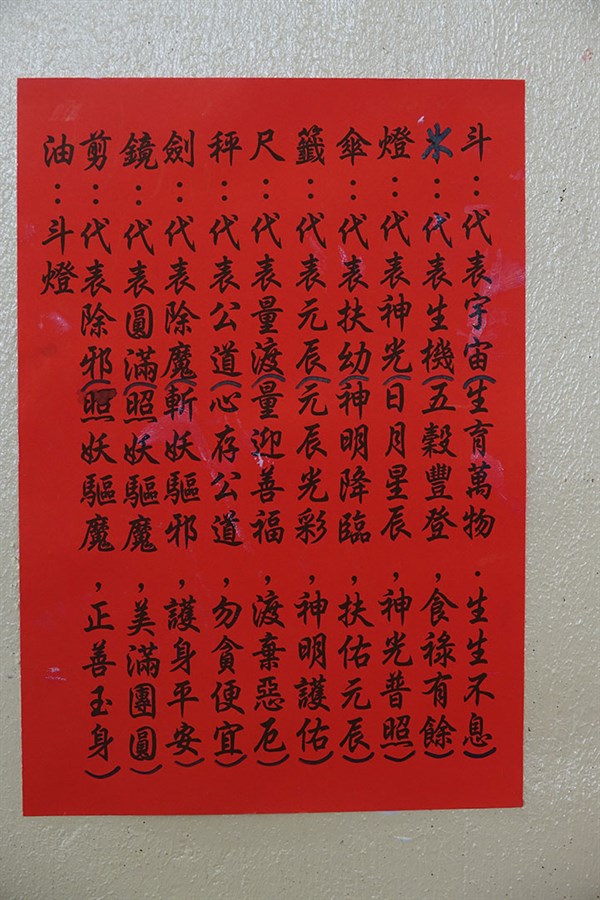 斗：代表宇宙(生育萬物．生生不息)
米：代表生機(五穀豐登，食祿有餘)
燈：代表神光(日月星辰，神光普照)
傘：代表扶幼(神明降臨，扶佑元辰)
籤：代表元辰(元辰光彩，神明護佑)
尺：代表量渡(量迎善福，渡棄惡厄)
秤：代表公道(心存公道，勿貪便宜)
劍：代表除魔(斬妖驅邪，護身平安)
鏡：代表圓滿(照妖驅魔，美滿團圓)
剪：代表除邪(照妖驅魔，正善玉身)
油：斗燈